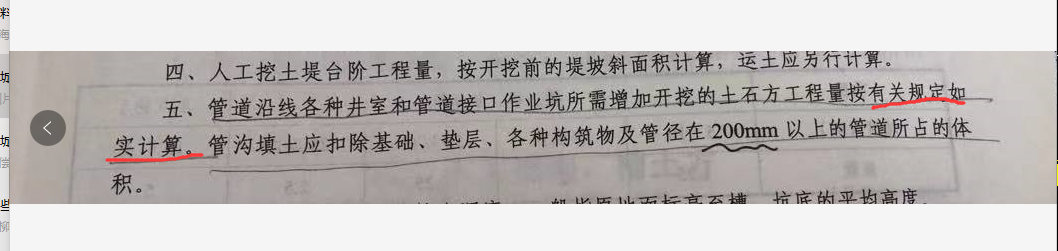 料
海
四、人工挖土堤台阶工程量，按开挖前的堤坡斜面积计算，运土应另行计算。
五、管道沿线各种井室和管道接口作业坑所需增加开挖的土石方工程量按有关规定如
实计算。管沟填土应扣除基础、垫层、各种构筑物及管径在 200mm 以上的管道所占的体
积。
一般指原地面标高至槽、坑底的平均高度。
些
柳